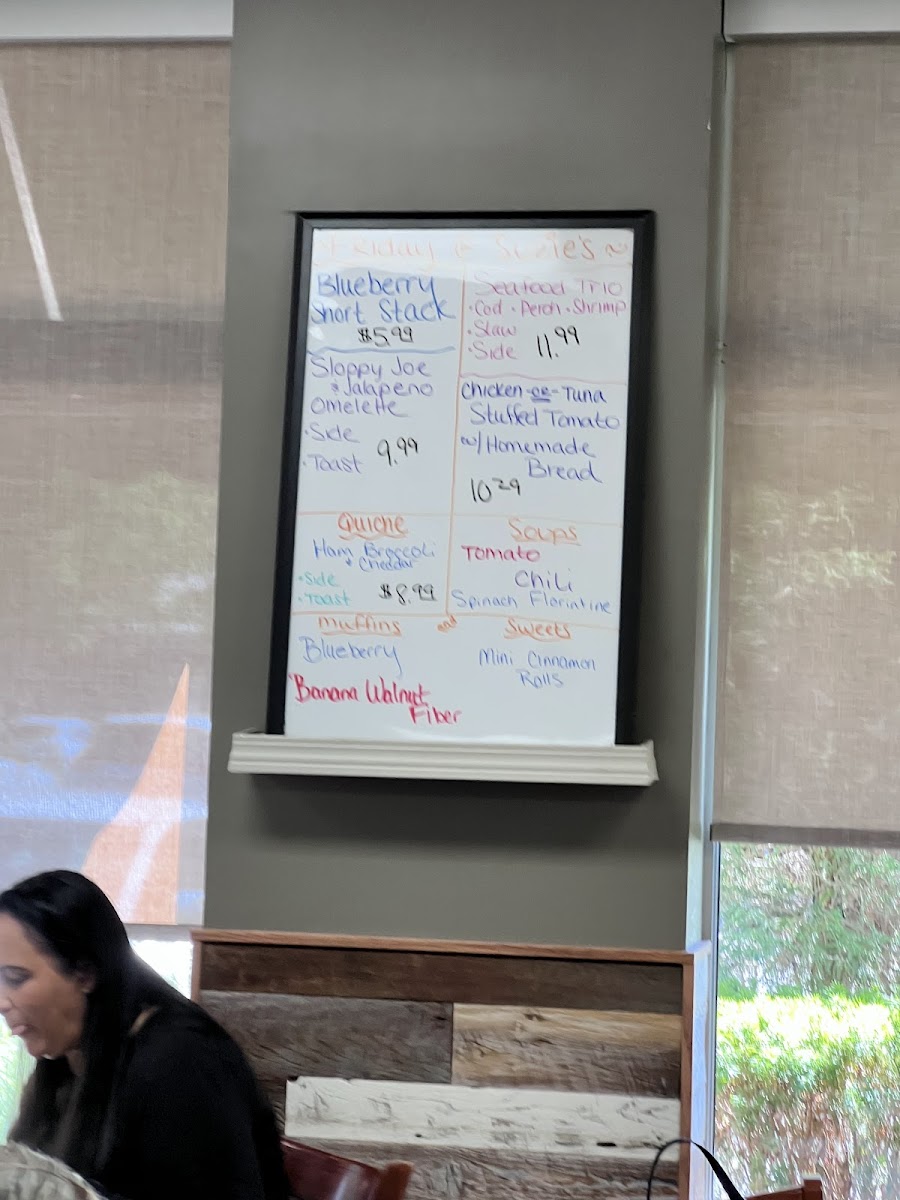 Friday @ Suzie's
Blueberry
Short Stack
$5.99
Sloppy Joe
& Jalapeno
Omelette
• Side
• Toast 9.99
Seafood Trio
• Cod • Perch • Shrimp
• Slaw
• Side 11.99
Chicken -or- Tuna
Stuffed Tomato
w/ Homemade
Bread
10.29
Quiche
Ham Broccoli
& Cheddar
• Side
• Toast $8.99
Soups
Tomato
Chili
Spinach Florintine
Muffins and Sweets
Blueberry
Banana Walnut
Fiber
Mini Cinnamon
Rolls